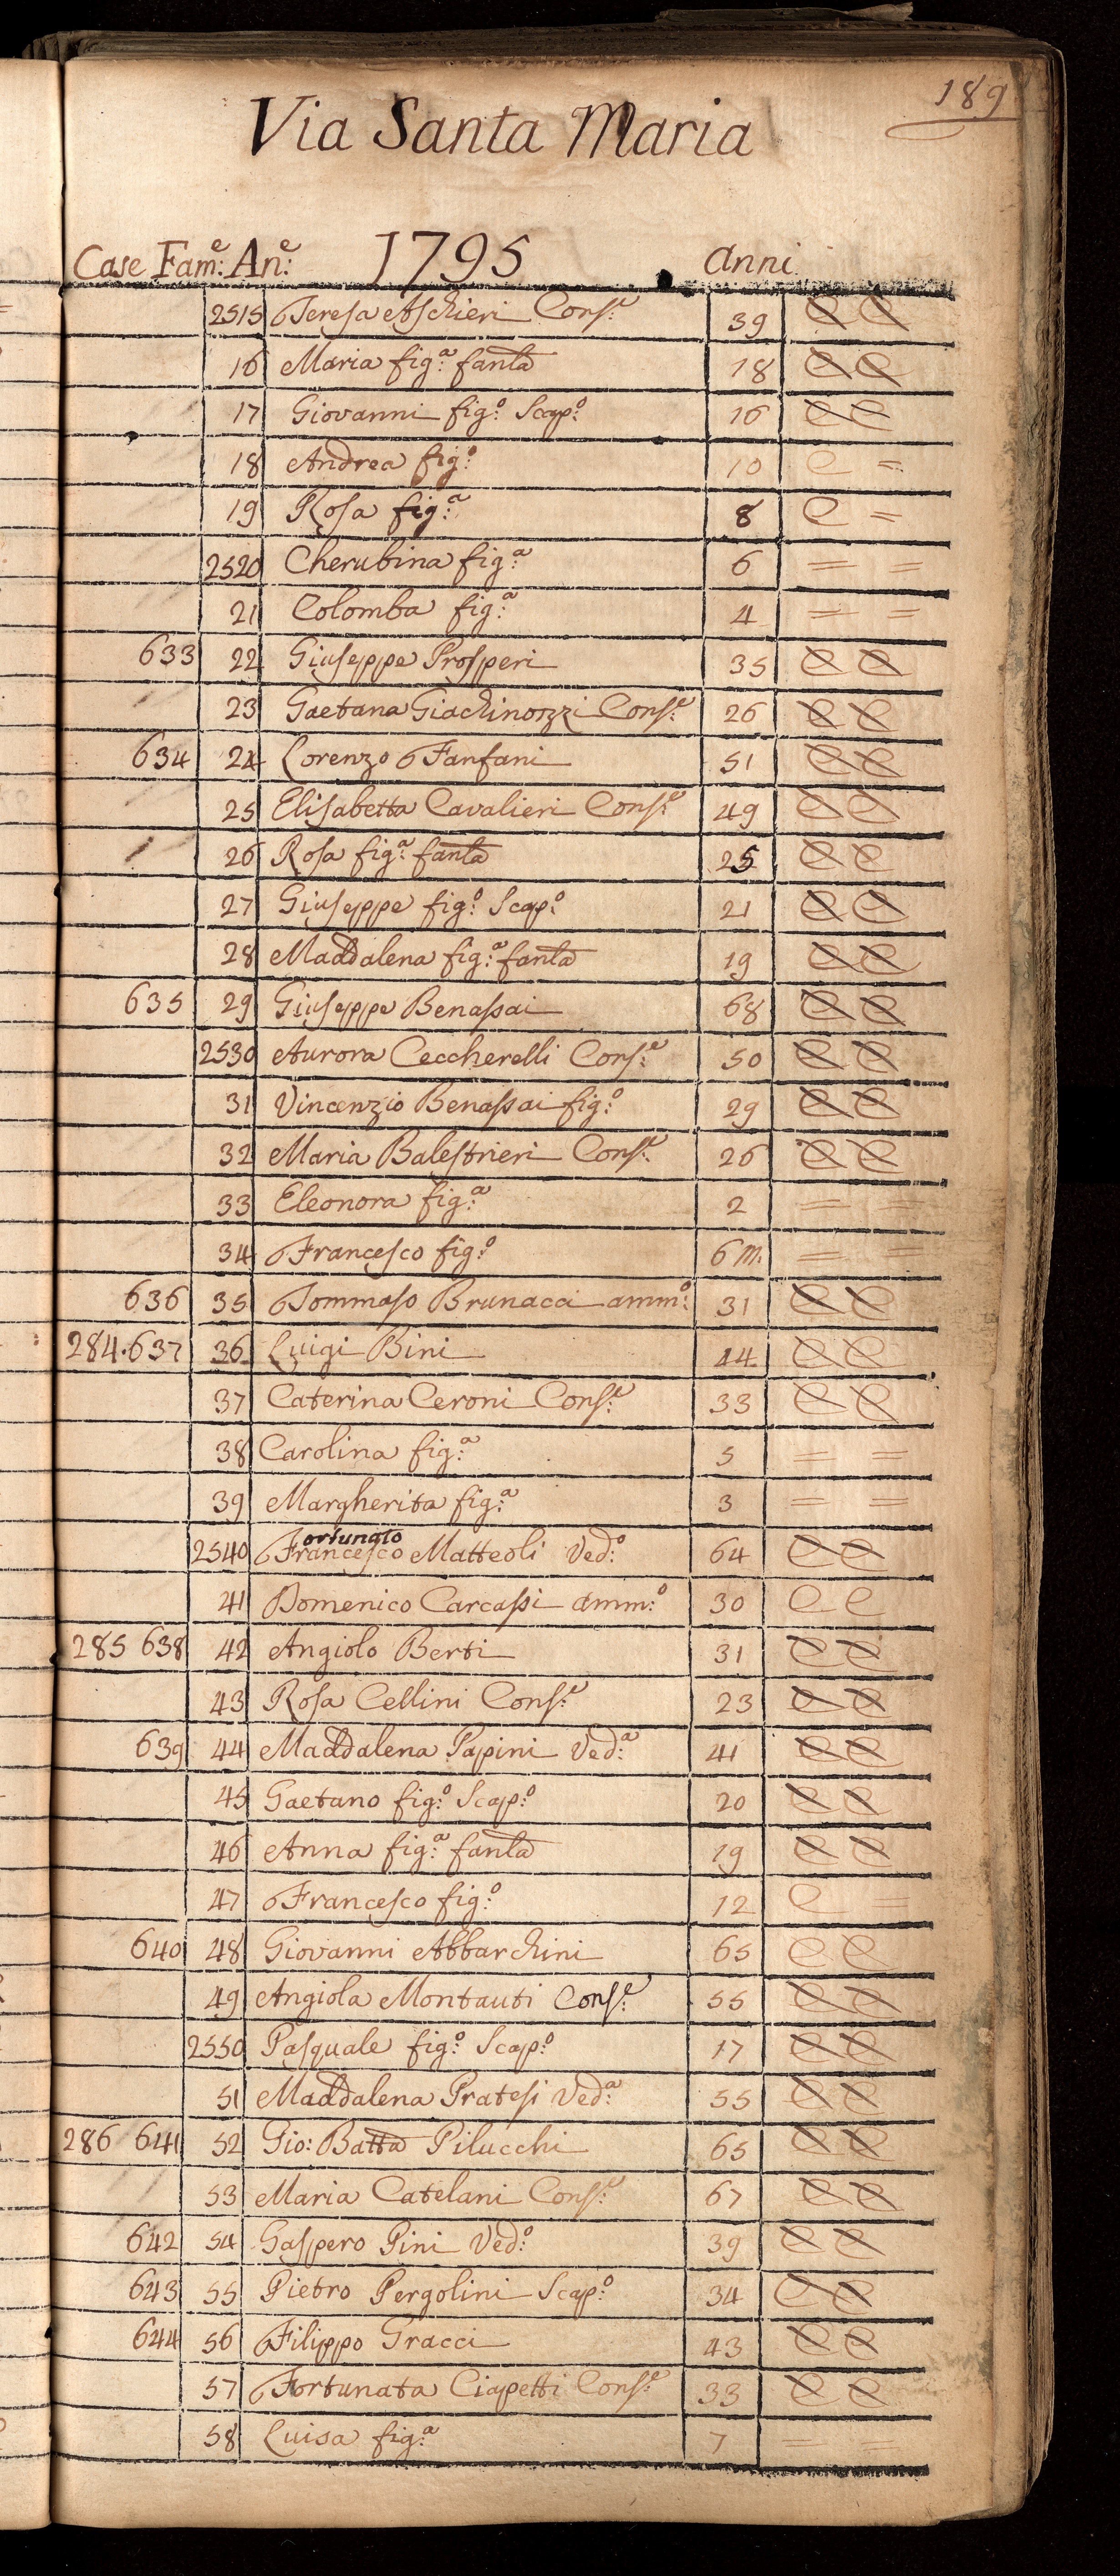 189
Via Santa Maria
Case Fam:e An:e 1795 Anni
2515 Teresa Aschieri Cons:e 39 C C
16 Maria fig:a fanla 18 C C
17 Giovanni fig:o Scap:o 16 C C
18 Andrea fig:o 10 C =
19 Rosa fig:a 8 C =
2520 Cherubina fig:a 6 = =
21 Colomba fig:a 4 = =
633 22 Giuseppe Prosperi 35 C C
23 Gaetana Giachinozzi Cons:e 26 C C
634 24 Lorenzo Fanfani 51 C C
25 Elisabetta Cavalieri Cons:e 49 C C
26 Rosa fig:a fanla 25 C C
27 Giuseppe fig:o Scap:o 21 C C
28 Maddalena fig:a fanla 19 C C
635 29 Giuseppe Benassai 68 C C
2530 Aurora Ceccherelli Cons:e 50 C C
31 Vincenzio Benassai fig:o 29 C C
32 Maria Balestrieri Cons:e 26 C C
33 Eleonora fig:a 2 = =
34 Francesco fig:o 6 m. = =
636 35 Tommaso Brunacci amm:o 31 C C
284.637 36 Luigi Bini 44 C C
37 Caterina Ceroni Cons:e 33 C C
38 Carolina fig:a 5 = =
39 Margherita fig:a 3 = =
ortunato
2540 Francesco Matteoli Ved:o 64 C C
41 Domenico Carcassi amm:o 30 C C
285 638 42 Angiolo Berti 31 C C
43 Rosa Cellini Cons:e 23 C C
639 44 Maddalena Papini Ved:a 41 C C
45 Gaetano fig:o Scap:o 20 C C
46 Anna fig:a fanla 19 C C
47 Francesco fig:o 12 C =
640 48 Giovanni Abbarchini 65 C C
49 Angiola Montauti Cons:e 55 C C
2550 Pasquale fig:o Scap:o 17 C C
51 Maddalena Pratesi Ved:a 55 C C
286 641 52 Gio: Batta Pilucchi 65 C C
53 Maria Catelani Cons:e 67 C C
642 54 Gaspero Pini Ved:o 39 C C
643 55 Pietro Pergolini Scap:o 34 C C
644 56 Filippo Gracci 43 C C
57 Fortunata Ciapetti Cons:e 33 C C
58 Luisa fig:a 7 = =